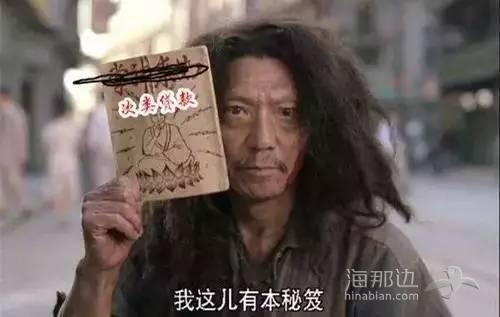 次类贷款
我这儿有本秘笈
海那边
hinabian.com